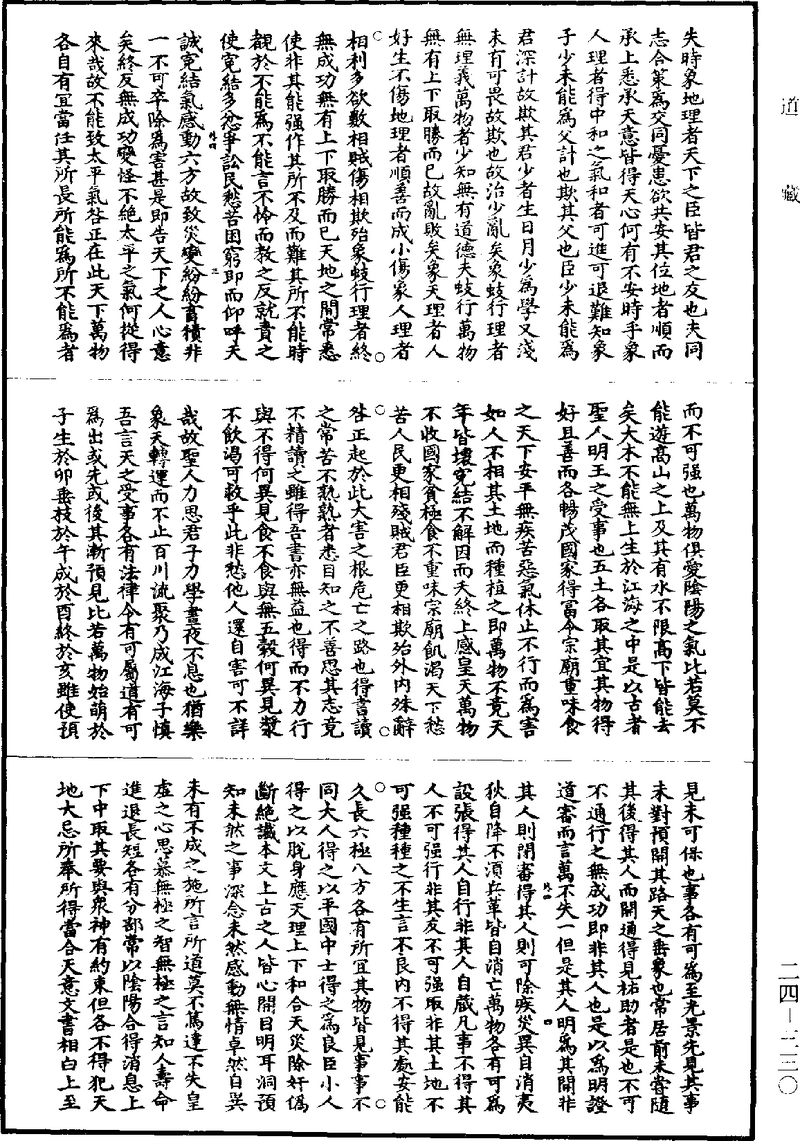 道藏
失時象地理者天下之臣皆君之友也夫同
志合策為交同憂患欲共安其位地者順而
承上悉承天意皆得天心何有不安時乎象
人理者得中和之氣和者可進可退難知象
子少未能為父計也欺其父也臣少未能為
君深計故欺其君少者生日月少為學又淺
未有可畏故欺也故治少亂矣象蚑行理者
無理義萬物者少知無有道德夫蚑行萬物
無有上下取勝而已故亂敗矣象天理者人
好生不傷地理者順善而成小傷象人理者
相利多欲數相賊傷相欺殆象蚑行理者終
無成功無有上下取勝而已天地之間常悉
使非其能強作其所不及而難其所不能時
覩於不能為不能言不怜而教之反就責之
使冤結多忿爭訟民愁苦困窮即而仰呼天
外四 三
誠冤結氣感動六方故致災變紛紛畜積非
一不可卒除為害甚是即告天下之人心意
矣終反無成功變怪不絕太平之氣何從得
來哉故不能致太平氣咎正在此天下萬物
各自有宜當任其所長所能為所不能為者
而不可強也萬物俱愛陰陽之氣比若莫不
能遊高山之上及其有水不限高下皆能去
矣大木不能無土生於江海之中是以古者
聖人明王之受事也五土各取其宜其物得
好且善而各暢茂國家得富令宗廟重味食
之天下安平無疾苦惡氣休止不行而為害
如人不相其土地而種植之即萬物不竟天
年皆壞冤結不解因而夭終上感皇天萬物
不收國家貧極食不重味宗廟飢渴天下愁
苦人民更相殘賊君臣更相欺殆外內殊辭
咎正起於此大害之根危亡之路也得書讀
之常苦不熟熟者悉目知之不善思其志竟
不精讀之雖得吾書亦無益也得而不力行
與不得何異見食不食與無五穀何異見漿
不飲渴可救乎此非愁他人還自害可不詳
哉故聖人力思君子力學晝夜不息也猶樂
象天轉運而不止百川流聚乃成江海子慎
吾言天之受事各有法律令有可屬道有可
為出或先或後其漸預見比若萬物始萌於
子生於卯垂枝於午成於酉終於亥雖使預
見未可保也事各有可為至光景先見其事
未對預開其路天之垂象也常居前未嘗隨
其後得其人而開通得見祐助者是也不可
不通行之無成功即非其人也是以為明證
道審而言萬不失一但是其人明為其開非
外四 四
其人則閉審得其人則可除疾災異自消夷
狄自降不須兵革皆自消亡萬物各有可為
設張得其人自行非其人自藏凡事不得其
人不可強行非其友不可強取非其土地不
可強種種之不生言不良內不得其處安能
久長六極八方各有所宜其物皆見事事不
同大人得之以平國中士得之為良臣小人
得之以脫身應天理上下和合天災除奸偽
斷絕讖本文上古之人皆心開目明耳洞預
知未然之事深念未然感動無情卓然自異
未有不成之施所言所道莫不篤達不失皇
虛之心思慕無極之智無極之言知人壽命
進退長短各有分部常以陰陽合得消息上
下中取其要與眾神有約束但各不得犯天
地大忌所奉所得當合天意文書相白上至
二四—三三〇